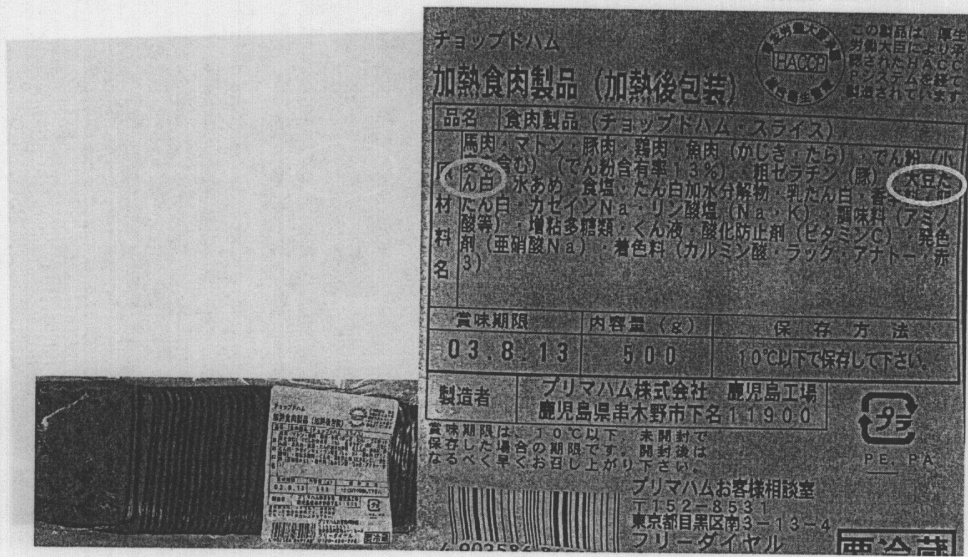 チョップドハム
加熱食肉製品（加熱後包装）
HACCP
この製品は、厚生
労働大臣により承
認されたHACC
Pシステムを経て
製造されています。
品名 食肉製品（チョップドハム・スライス）
原材料名
馬肉・マトン・豚肉・鶏肉・魚肉（かじき・たら）、でん粉（小
麦を含む）（でん粉含有率：3%）、粗ゼラチン（豚）、大豆た
ん白、水あめ、食塩、たん白加水分解物、乳たん白、香
たん白、カゼインNa、リン酸塩（Na・K）、調味料（アミノ
酸等）、増粘多糖類、くん液、酸化防止剤（ビタミンC）、発色
剤（亜硝酸Na）、着色料（カルミン酸・ラック・アナトー・赤
3）
賞味期限 内容量（g） 保存方法
03.8.13 500 10℃以下で保存して下さい。
製造者 プリマハム株式会社 鹿児島工場
鹿児島県串木野市下名11900
プラ
PE, PA
賞味期限は、10℃以下、未開封で
保存した場合の期限です。開封後は
なるべく早くお召し上がり下さい。
プリマハムお客様相談室
〒152-8531
東京都目黒区南3-13-4
フリーダイヤル
要冷蔵
4 903586
チョップドハム
加熱食肉製品（加熱後包装）